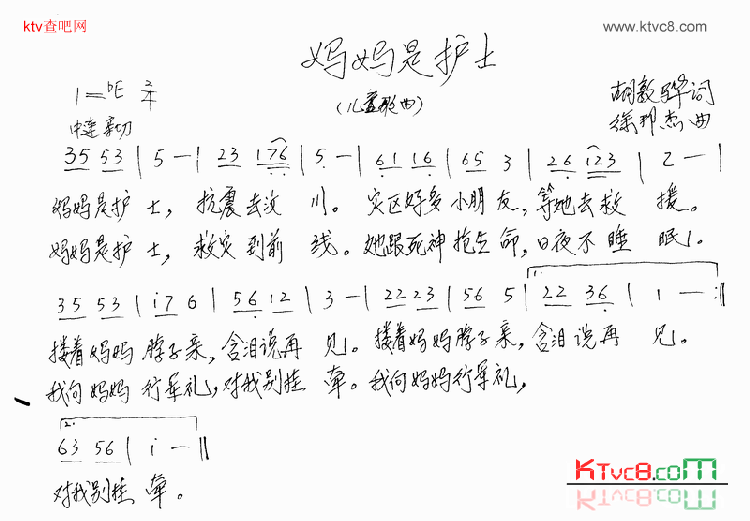 ktv查吧网
www.ktvc8.com
妈妈是护士
(儿童歌曲)
1=bE 2/4
胡敦骅词
徐邦杰曲
中速 亲切
35 53 | 5 — | 23 176 | 5 — | 61 16 | 65 3 | 26 123 | 2 — |
妈妈是护士，抗震去汶川。灾区好多小朋友，等她去救援。
妈妈是护士，救灾到前线。她跟死神抢生命，日夜不睡眠。
35 53 | i7 6 | 56 12 | 3 — | 22 23 | 56 5 | 22 36 | 1 — :||
1.
搂着妈妈脖子亲，含泪说再见。搂着妈妈脖子亲，含泪说再见。
我向妈妈行军礼，对我别挂牵。我向妈妈行军礼，
2.
63 56 | i — ||
对我别挂牵。
KTVC8.COM